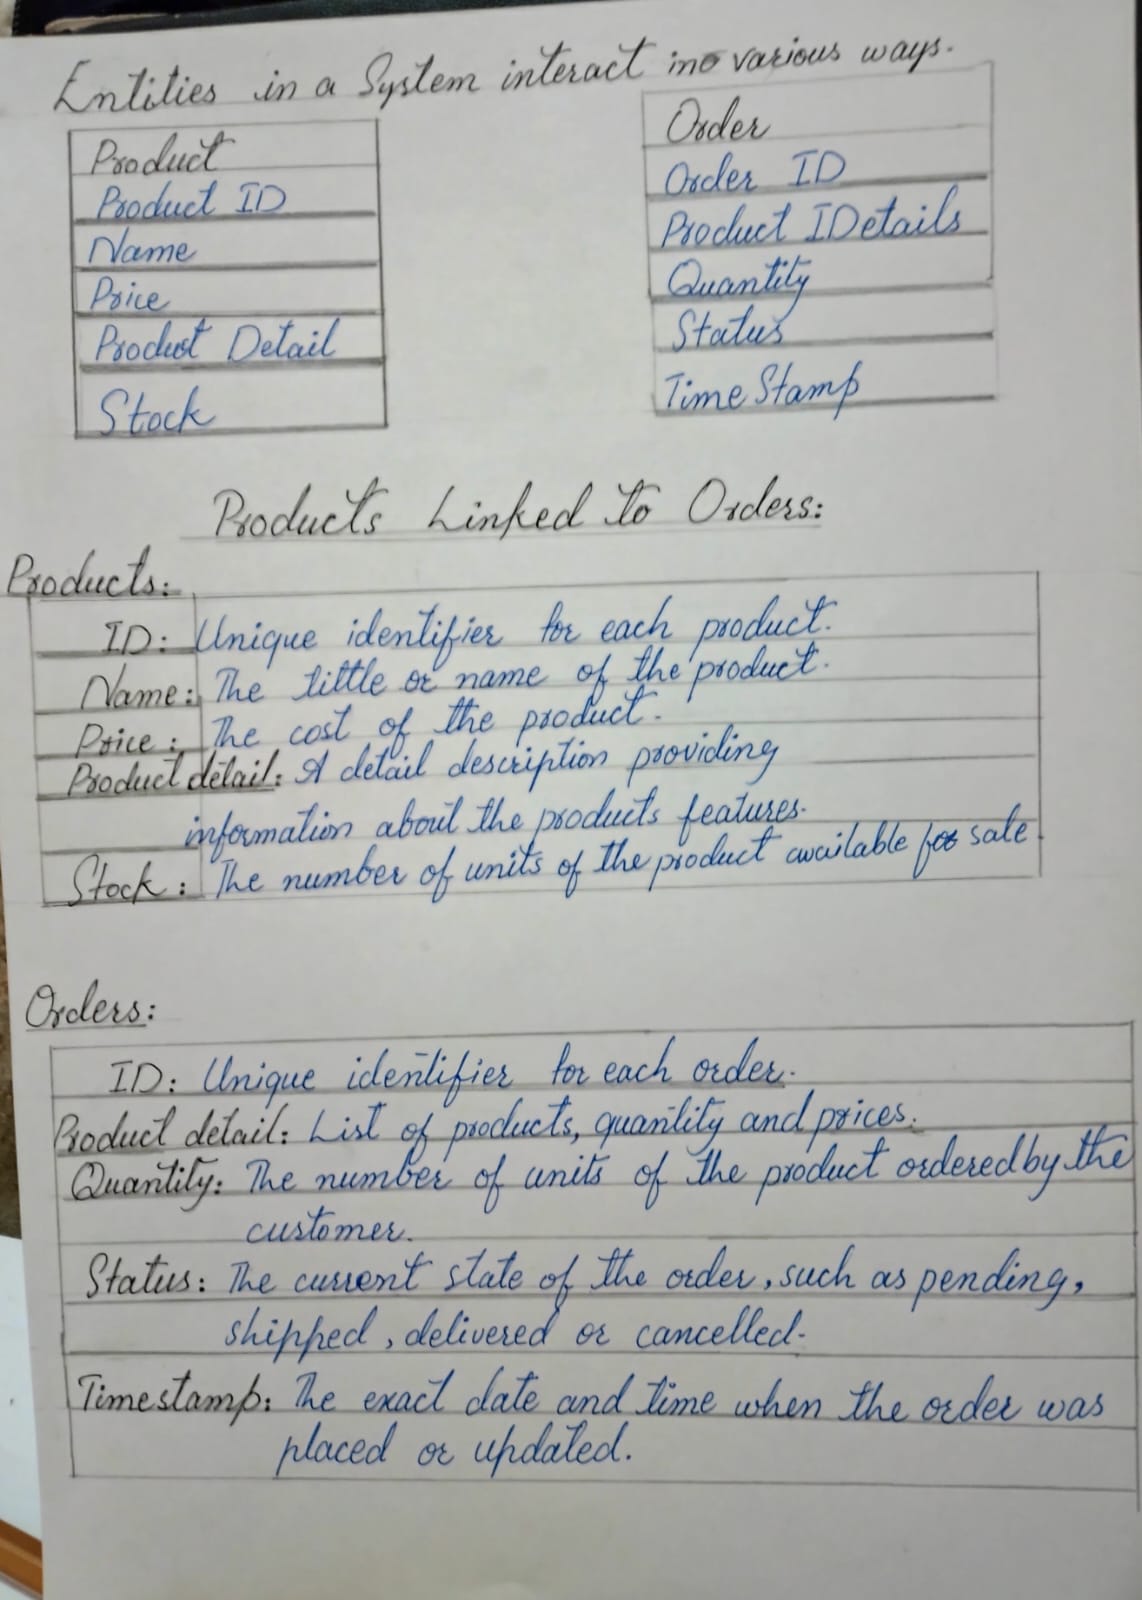 Entities in a System interact in various ways.
Product
Product ID
Name
Price
Product Detail
Stock
Order
Order ID
Product IDetails
Quantity
Status
Time Stamp
Products Linked to Orders:
Products:
ID: Unique identifier for each product.
Name: The tittle or name of the product.
Price: The cost of the product.
Product detail: A detail description providing
information about the products features.
Stock: The number of units of the product available for sale
Orders:
ID: Unique identifier for each order.
Product detail: List of products, quantity and prices.
Quantity: The number of units of the product ordered by the
customer.
Status: The current state of the order, such as pending,
shipped, delivered or cancelled.
Timestamp: The exact date and time when the order was
placed or updated.